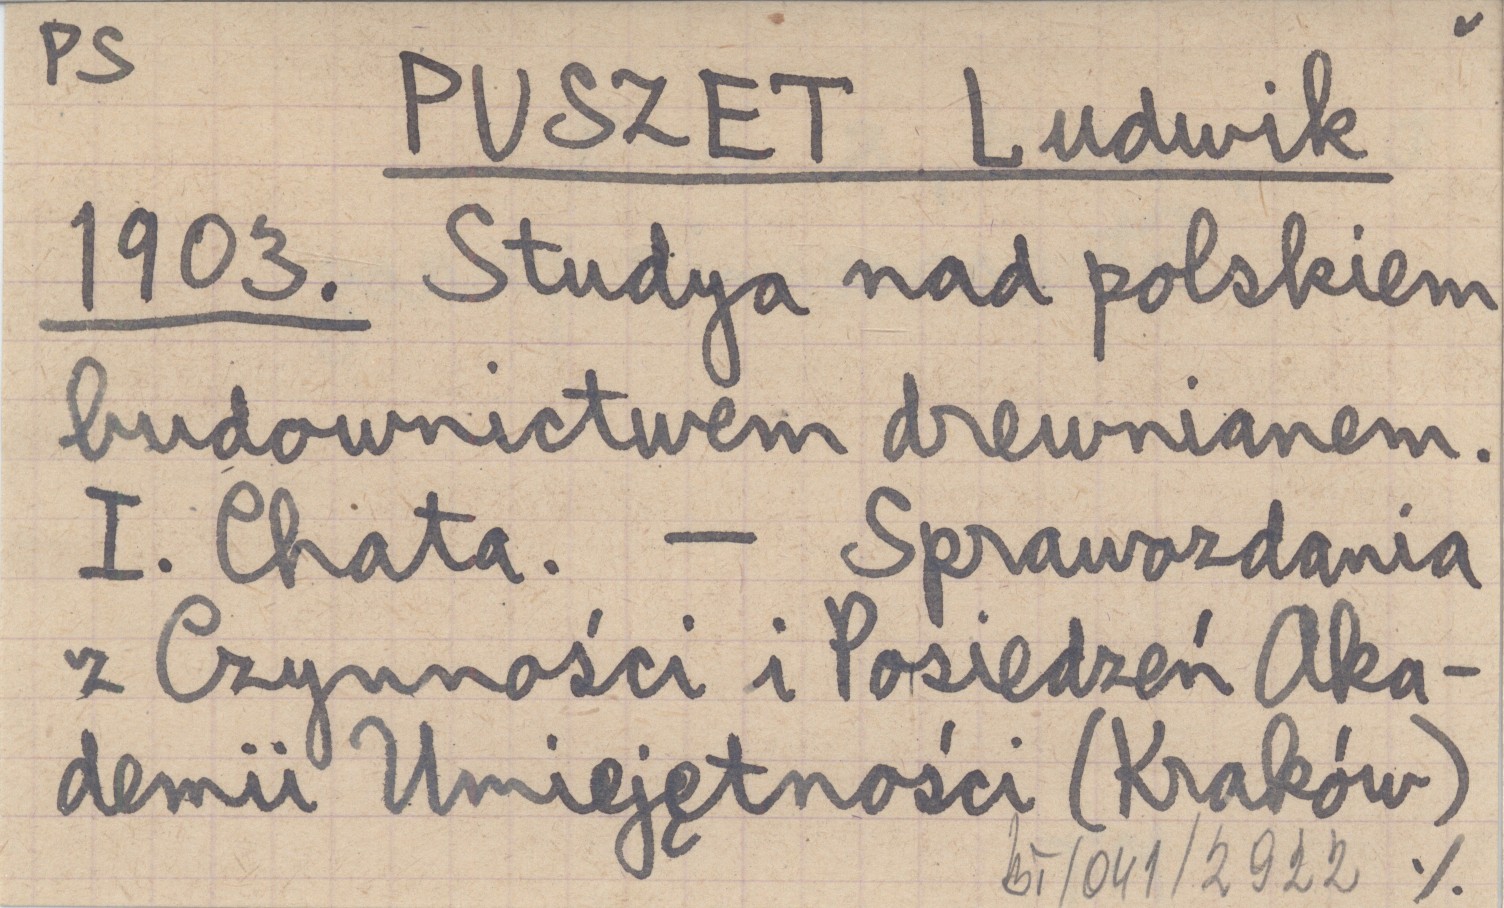 PS
PUSZET Ludwik
1903. Studya nad polskiem
budownictwem drewnianem.
I. Chata. — Sprawozdania
z Czynności i Posiedzeń Aka-
demii Umiejętności (Kraków)
/041/2922 ./.